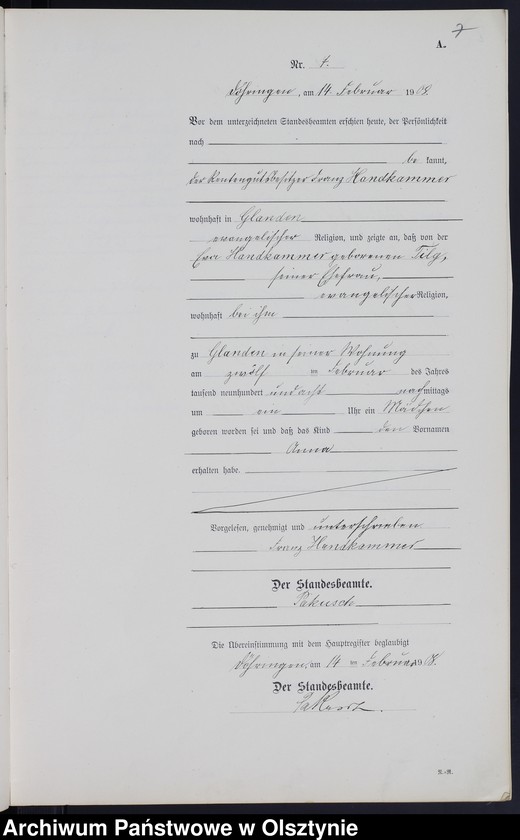 7
A.
Nr. 7.
Döhringen, am 14. Februar 1908.
Vor dem unterzeichneten Standesbeamten erschien heute, der Persönlichkeit
nach
be kannt,
der Rentengutsbesitzer Franz Handkammer
wohnhaft in Glanden
evangelischer Religion, und zeigte an, daß von der
Eva Handkammer geborenen Tilg,
seiner Ehefrau,
evangelischer Religion,
wohnhaft bei ihm
zu Glanden in seiner Wohnung
am zwölf ten Februar des Jahres
tausend neunhundert und acht nachmittags
um ein Uhr ein Mädchen
geboren worden sei und daß das Kind den Vornamen
Anna
erhalten habe.
Vorgelesen, genehmigt und unterschrieben
Franz Handkammer
Der Standesbeamte.
Die Übereinstimmung mit dem Hauptregister beglaubigt
Döhringen, am 14 ten Februar 1908.
Der Standesbeamte.
R.-R.
Archiwum Państwowe w Olsztynie